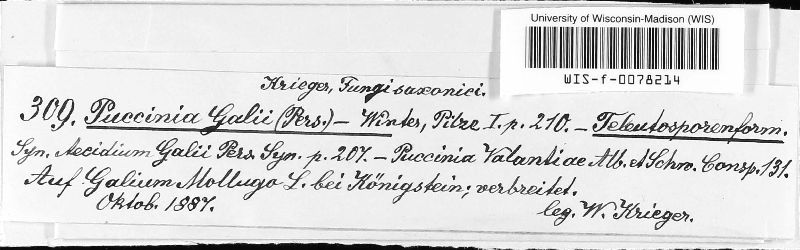 University of Wisconsin-Madison (WIS)
WIS-f-0078214
Krieger, Fungi saxonici.
309. Puccinia Galii (Pers.) – Winter, Pilze I. p. 210. – Teleutosporenform.
Syn. Aecidium Galii Pers. Syn. p. 207. – Puccinia Valantiae Alb. et Schw. Consp. 131.
Auf Galium Mollugo L. bei Königstein; verbreitet.
Oktob. 1887.
leg. W. Krieger.